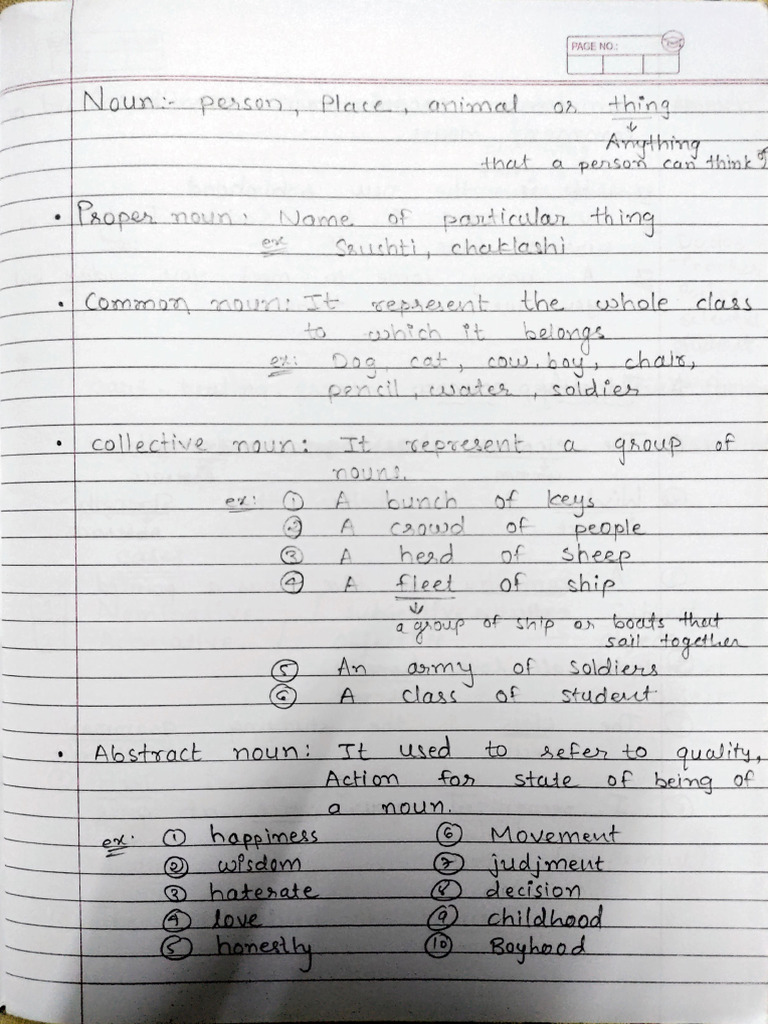 PAGE NO.:
Noun:- person, Place, animal or thing
Anything
that a person can think of
• Proper noun: Name of particular thing
ex Srushti, chaklashi
• Common noun: It represent the whole class
to which it belongs
ex: Dog, cat, cow, boy, chair,
pencil, water, soldier
• collective noun: It represent a group of
nouns.
ex: ① A bunch of keys
② A crowd of people
③ A herd of sheep
④ A fleet of ship
a group of ship or boats that
sail together
⑤ An army of soldiers
⑥ A class of student
• Abstract noun: It used to refer to quality,
Action for state of being of
a noun.
ex: ① happiness ⑥ Movement
② wisdom ⑦ judjment
③ haterate ⑧ decision
④ love ⑨ childhood
⑤ honestly ⑩ Boyhood